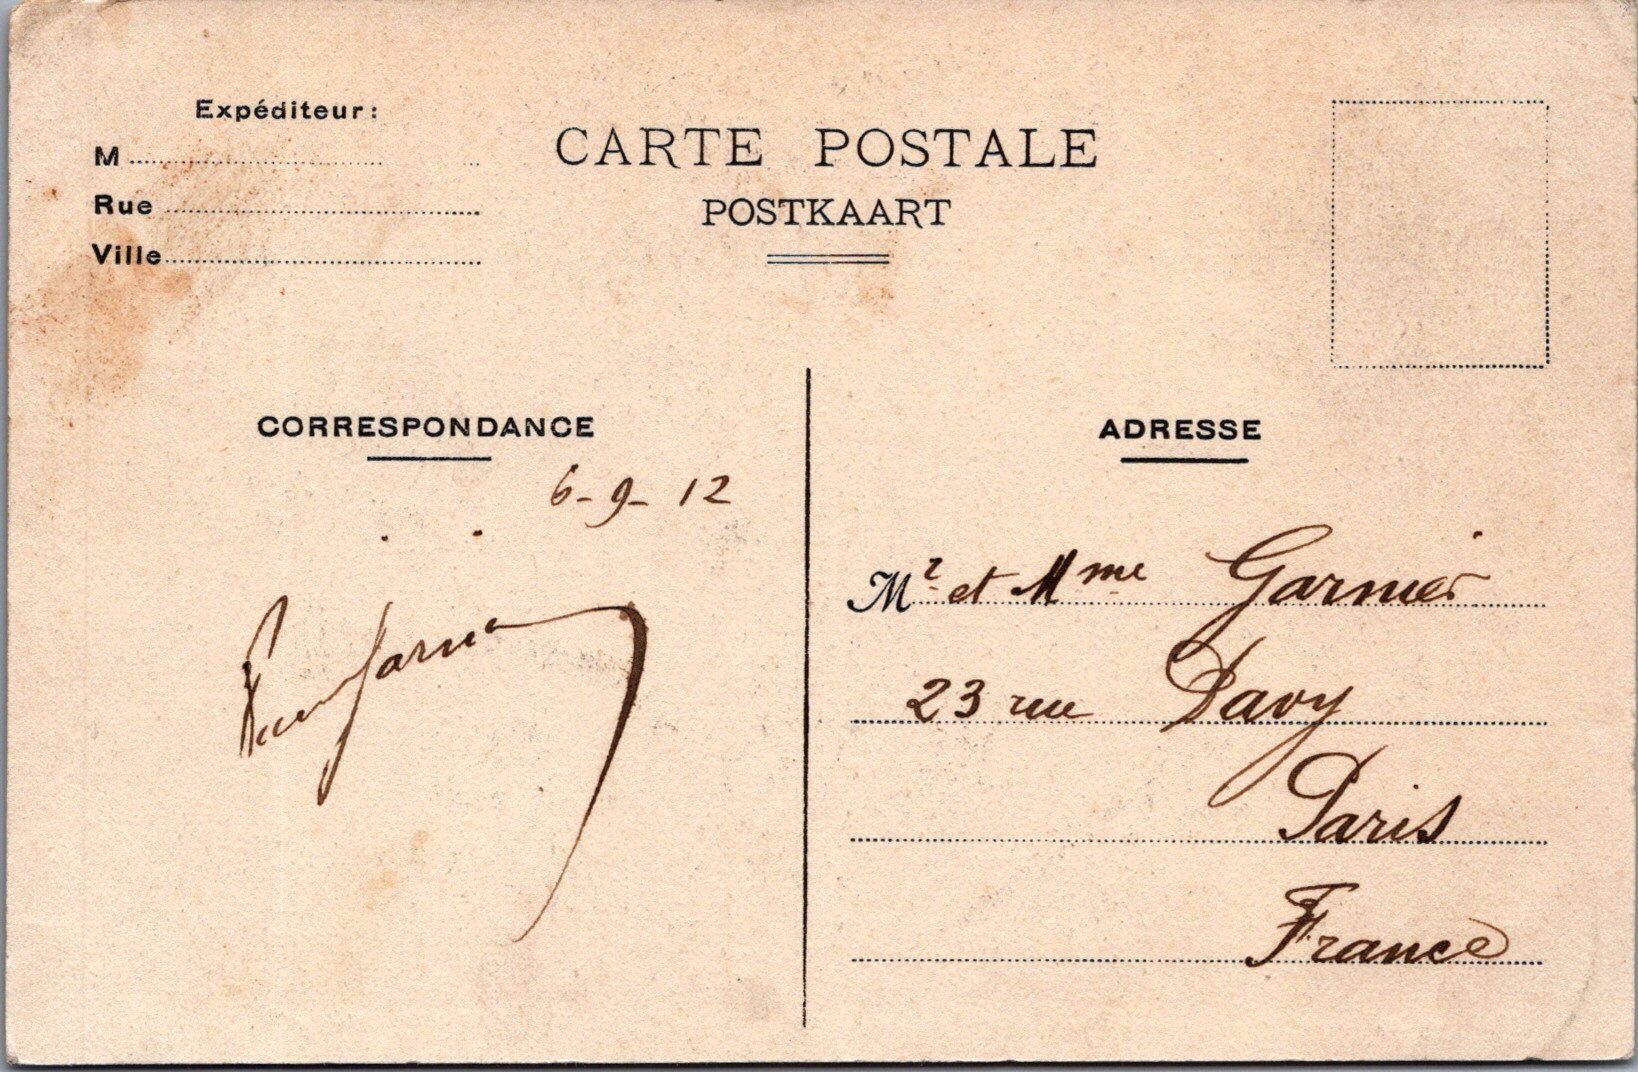 Expéditeur:
M
Rue
Ville
CARTE POSTALE
POSTKAART
CORRESPONDANCE
6-9-12
ADRESSE
Mr et Mme Garnier
23 rue Davy
Paris
France